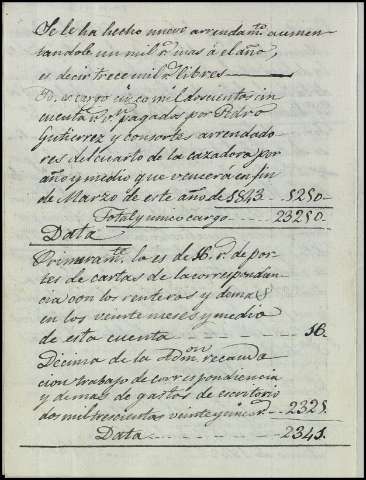 Se le ha hecho nuevo arrendamto. aumen
tandole un mil rs. mas á el año,
es decir trece mil rs. libres
Id. es cargo cinco mil doscientos cin
cuenta rs. vn. pagados por Pedro
Gutierrez y consortes arrendado
res del cuarto de la cazadora por
año y medio que vencerá en fin
de Marzo de este año de 1843 - - 5250 -
Total y unico cargo - - - - 23250.
Data
Primeramte. lo es de 16. rs. de por-
tes de cartas de la correspondun
cia con los renteros y demas
en los veinte meses y medio
de esta cuenta - - - - - - - 16.
Décima de la Admon. recauda
cion trabajo de correspondiencia
y demas de gastos de escritorio
dos mil trescientas veinte y cinco rs. - - 2325.
Data - - - - - - - 2341.